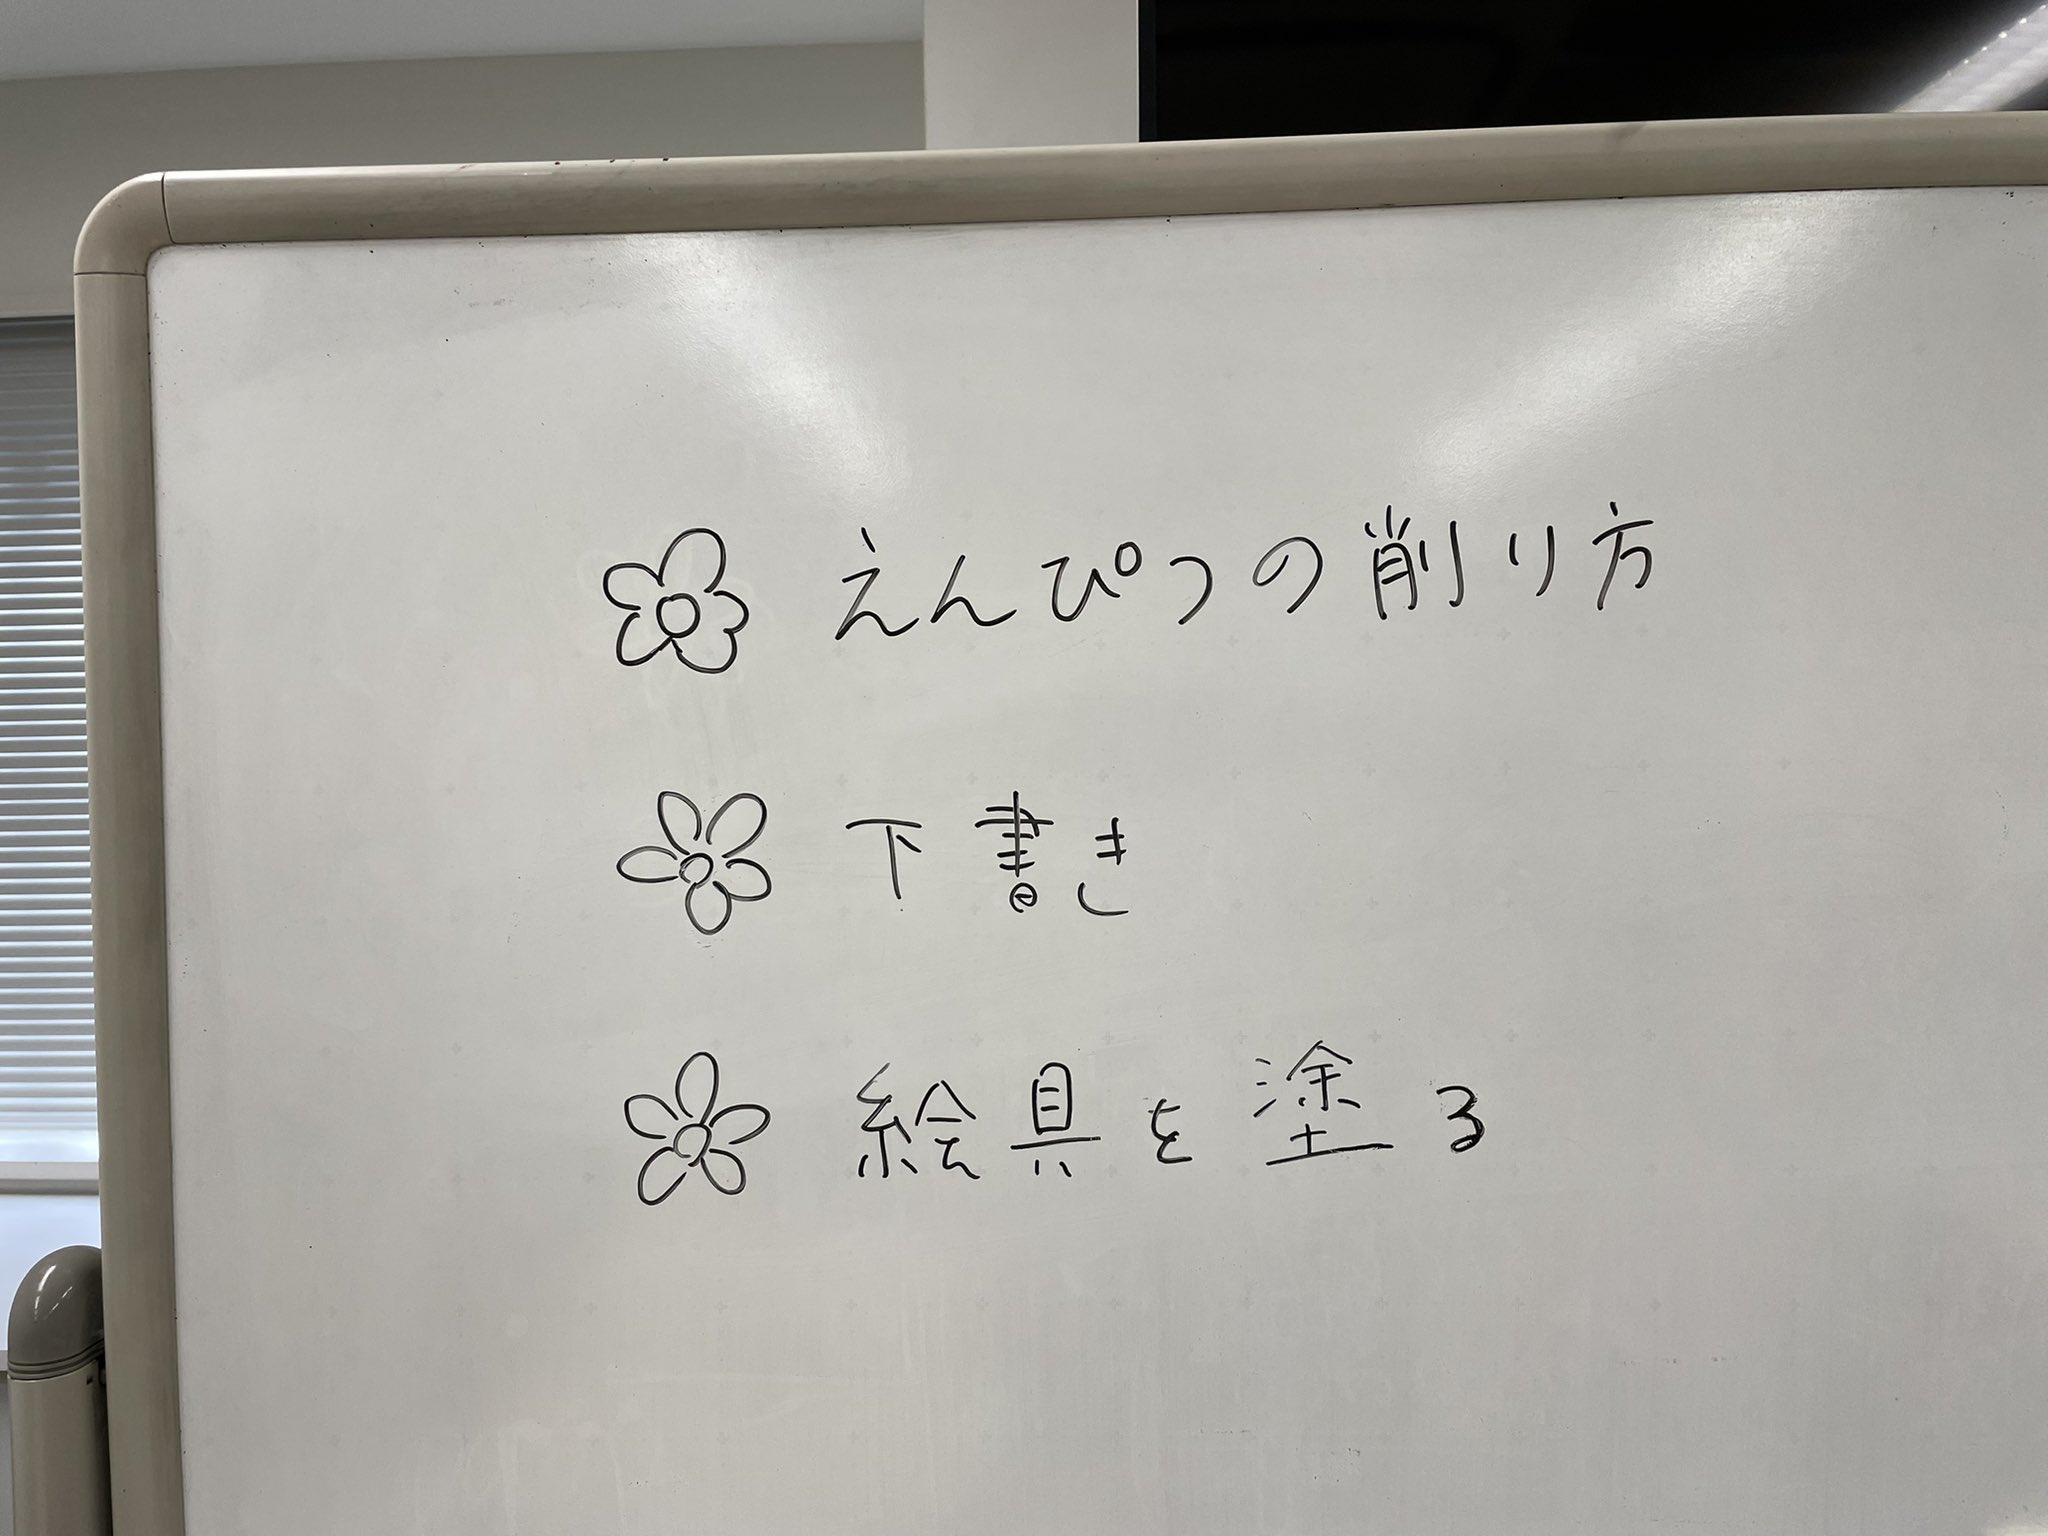 えんぴつの削り方
下書き
絵具を塗る